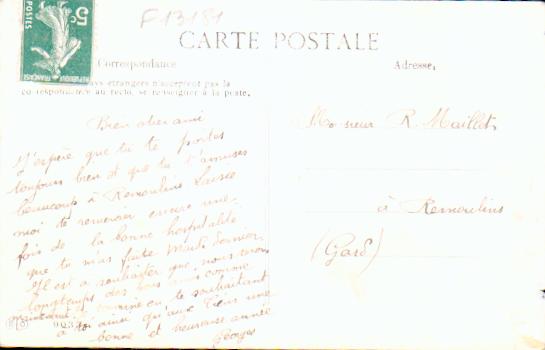 F 13181
5c
POSTES
RÉPUBLIQUE FRANÇAISE
CARTE POSTALE
Correspondance
Adresse.
pays étrangers n'acceptent pas la
correspondance au recto, se renseigner à la poste.
Bien cher ami
J'espère que tu te portes
toujours bien et que tu t'amuses
beaucoup à Remoulins Laisse
moi te remercier encore une
fois de la bonne hospitalité
que tu m'as faite Mardi dernier.
Il est à souhaiter que nous serons
longtemps des bons amis comme
maintenant. Je termine en te souhaitant
à toi ainsi qu'aux tiens une
bonne et heureuse année
Georges
Monsieur R. Maillet
à Remoulins
(Gard)